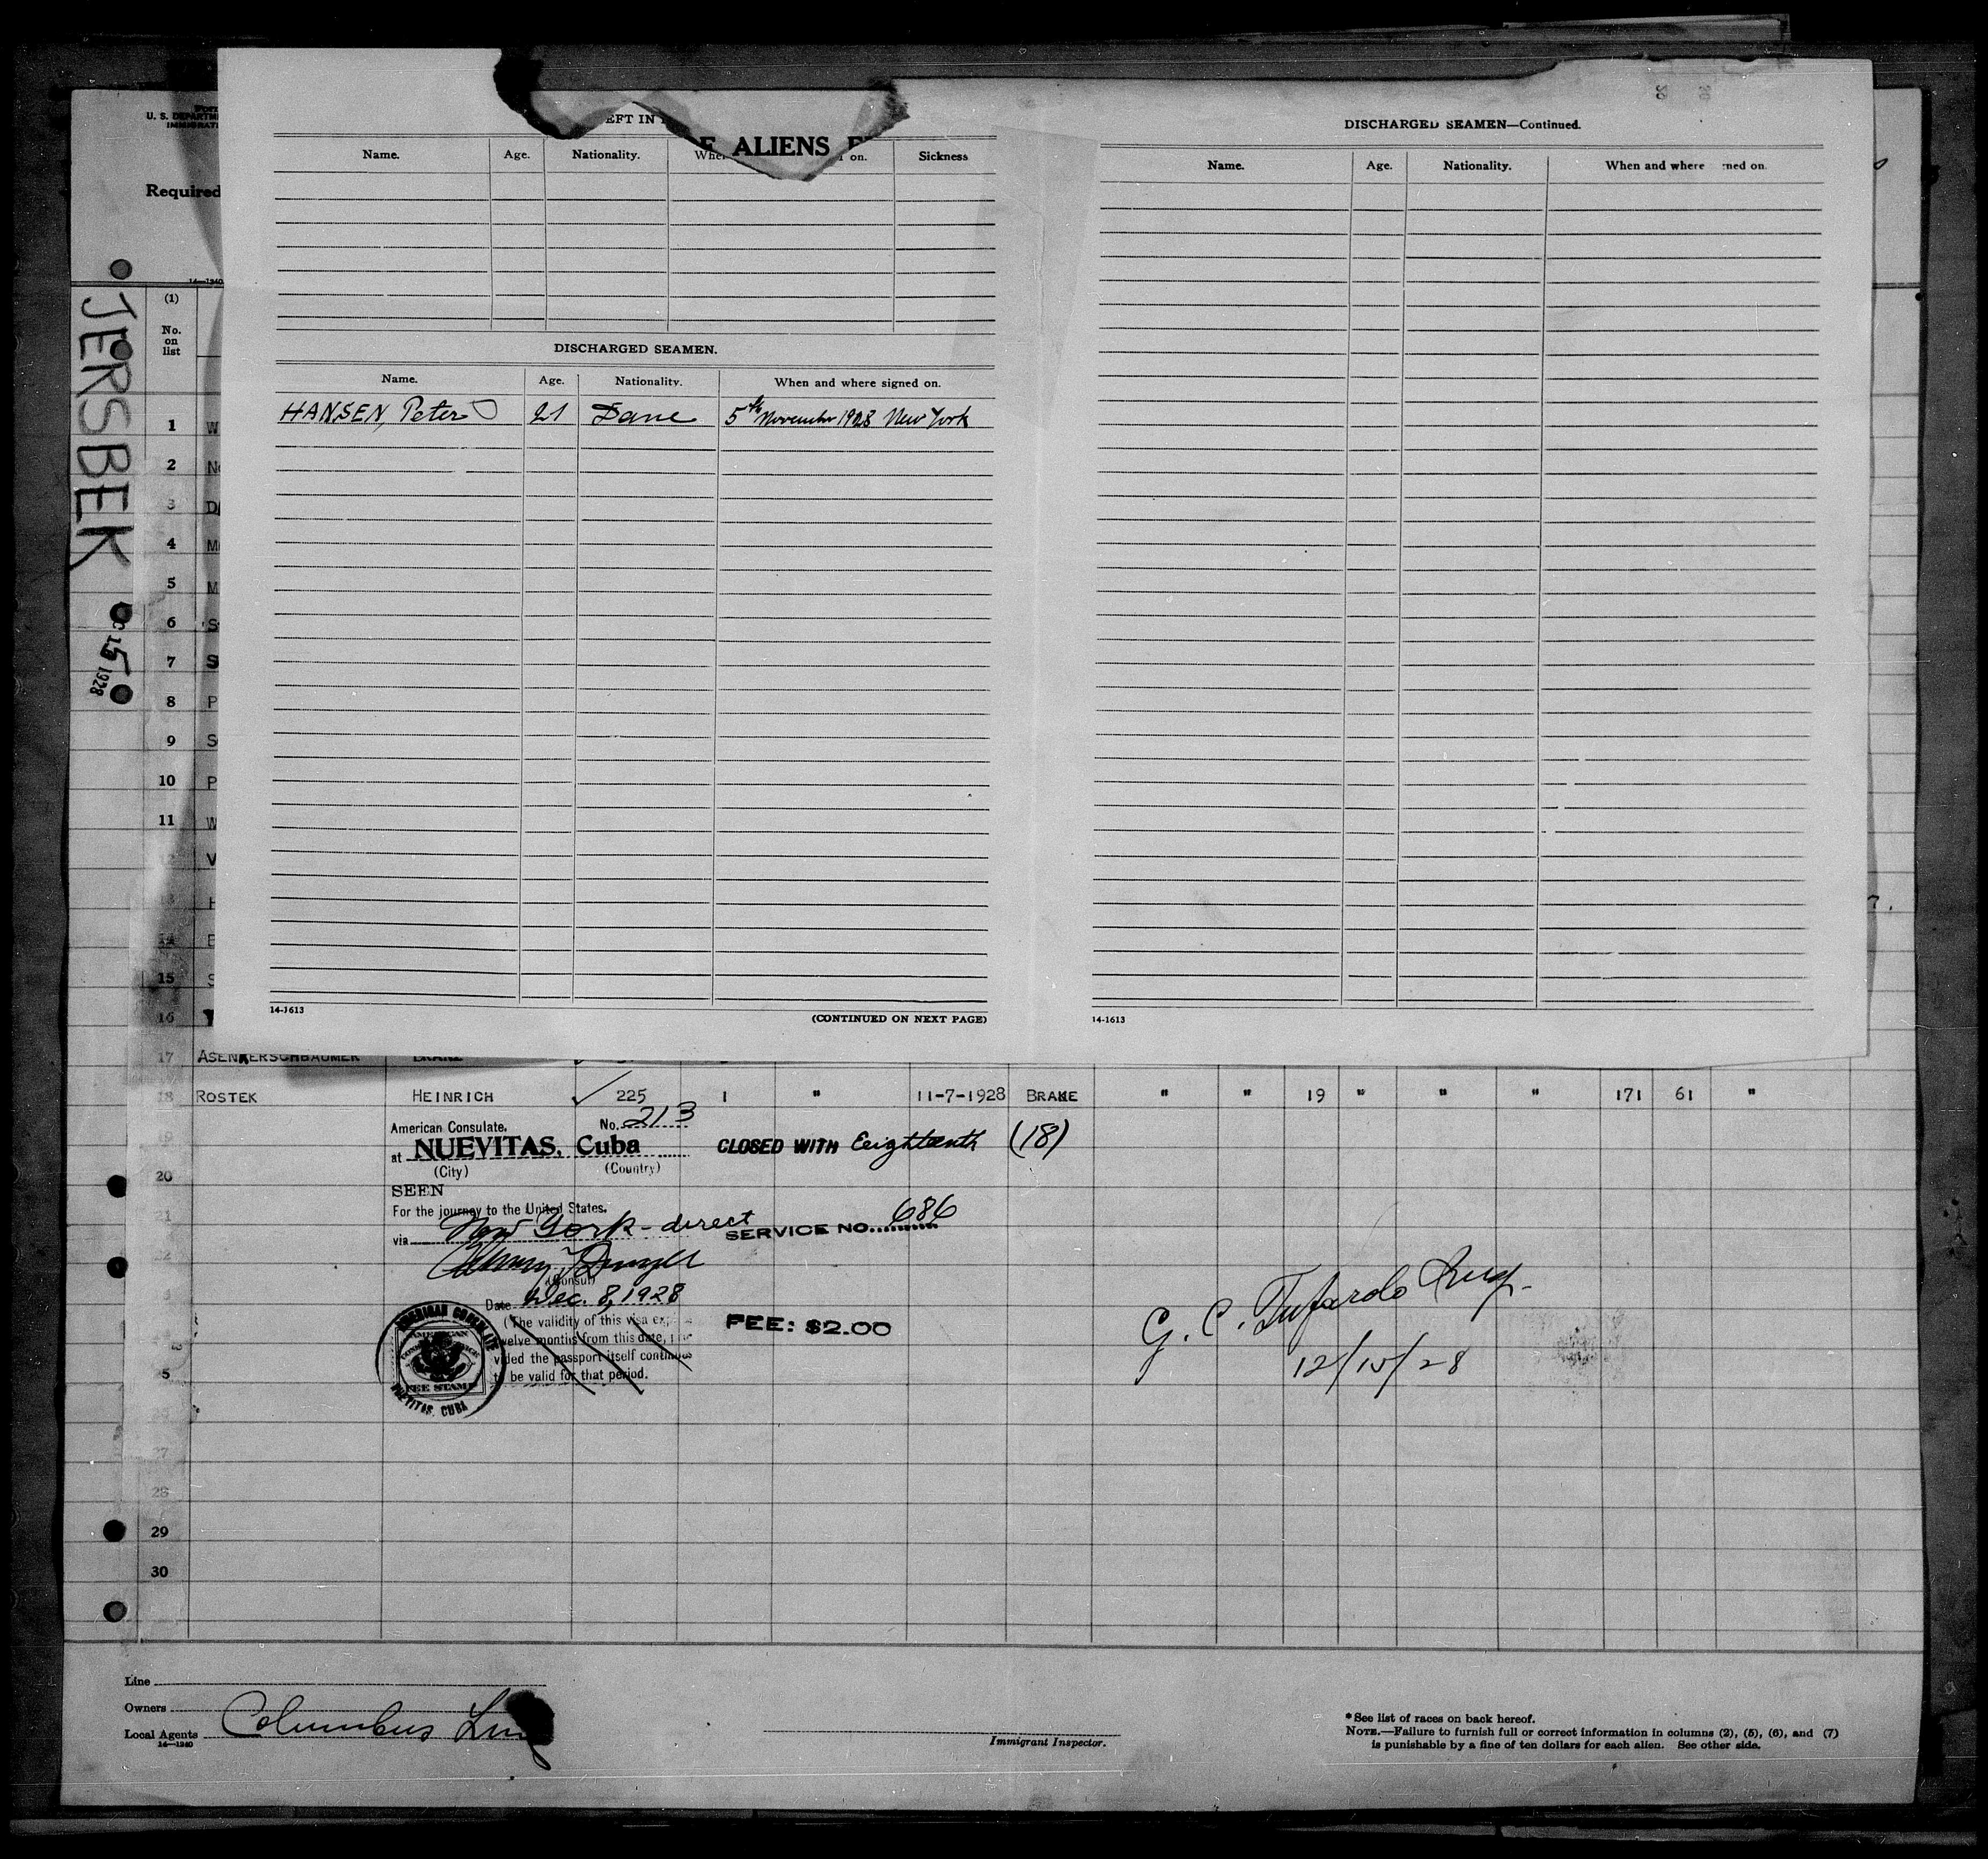 U. S. DEPARTM
IMMIGRATI
Required
14—1240
JERSBEK
15 1928
EFT IN
F ALIENS
Name. Age. Nationality. Whe on. Sickness
DISCHARGED SEAMEN.
Name. Age. Nationality. When and where signed on.
HANSEN, Peter 21 Dane 5th November 1928 New York
14-1613
(CONTINUED ON NEXT PAGE)
DISCHARGED SEAMEN—Continued.
Name. Age. Nationality. When and where ned on.
14-1613
(1)
No.
on
list
1 W
2 N
3 D
4 M
5 M
6 S
7 S
8 P
9 S
10 P
11 W
V
H
14
15 S
16
17 ASENKERSCHBAUMER FRANZ
18 ROSTEK HEINRICH 225 1 " 11-7-1928 BRAKE " " 19 " " " 171 61 "
American Consulate. No. 213
at NUEVITAS, Cuba
(City) (Country)
CLOSED WITH Eeighteenth (18)
20
SEEN
For the journey to the United States.
21
via New York - direct
SERVICE NO. 686
(Consul)
Date Dec. 8, 1928
(The validity of this visa exp
welve months from this date, pro
vided the passport itself continues
to be valid for that period.
AMERICAN CONSULATE
AMERICAN
FEE STAMP
NUEVITAS, CUBA
FEE: $2.00
G. C. Tufardo Insp.
12/15/28
5
27
28
29
30
Line
Owners
Local Agents Columbus Line
14—1240
Immigrant Inspector.
* See list of races on back hereof.
NOTE.—Failure to furnish full or correct information in columns (2), (5), (6), and (7)
is punishable by a fine of ten dollars for each alien. See other side.